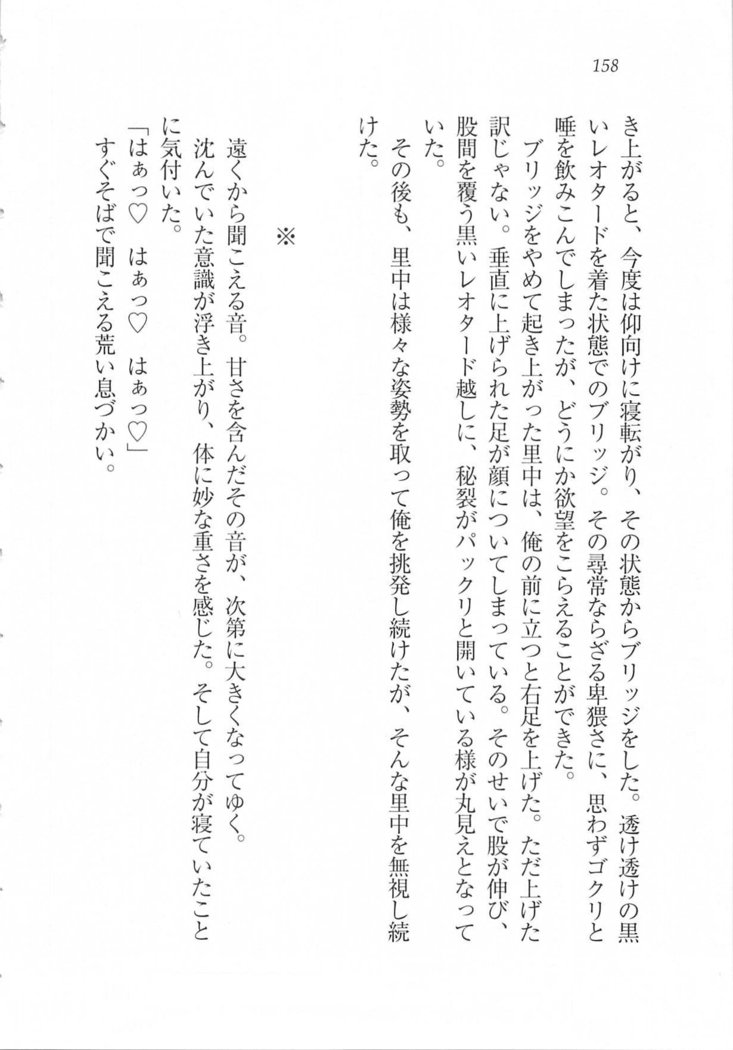 158
き上がると、今度は仰向けに寝転がり、その状態からブリッジをした。透け透けの黒
いレオタードを着た状態でのブリッジ。その尋常ならざる卑猥さに、思わずゴクリと
唾を飲みこんでしまったが、どうにか欲望をこらえることができた。
　ブリッジをやめて起き上がった里中は、俺の前に立つと右足を上げた。ただ上げた
訳じゃない。垂直に上げられた足が顔についてしまっている。そのせいで股が伸び、
股間を覆う黒いレオタード越しに、秘裂がパックリと開いている様が丸見えとなって
いた。
　その後も、里中は様々な姿勢を取って俺を挑発し続けたが、そんな里中を無視し続
けた。
※
　遠くから聞こえる音。甘さを含んだその音が、次第に大きくなってゆく。
　沈んでいた意識が浮き上がり、体に妙な重さを感じた。そして自分が寝ていたこと
に気付いた。
「はぁっ♡　はぁっ♡　はぁっ♡」
　すぐそばで聞こえる荒い息づかい。